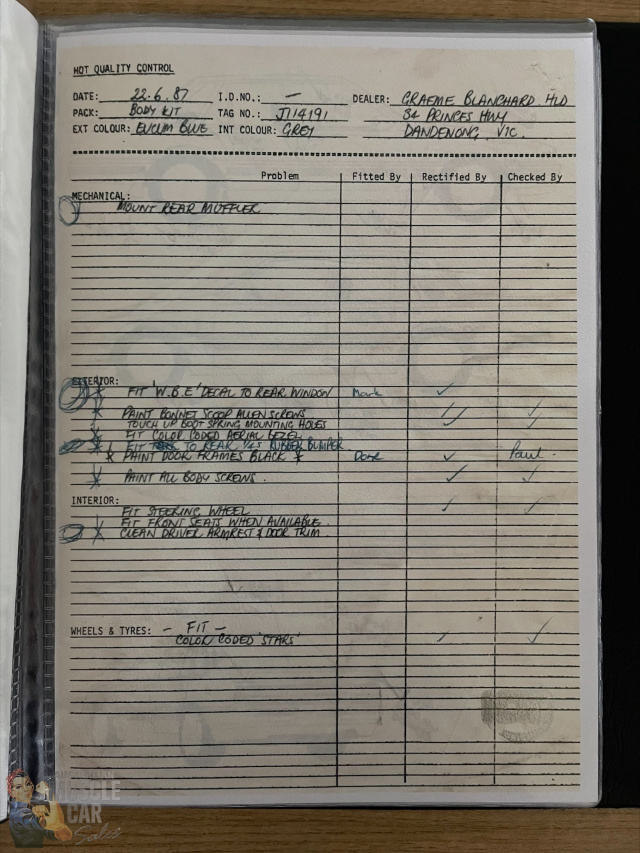 HOT QUALITY CONTROL
DATE: 22.6.87 I.D.NO.: — DEALER: GRAEME BLANCHARD HLD
PACK: BODY KIT TAG NO.: J114191 34 PRINCES HWY
EXT COLOUR: INT COLOUR: GREY DANDENONG, VIC.
Problem Fitted By Rectified By Checked By
MECHANICAL:
MOUNT REAR MUFFLER
EXTERIOR:
* FIT 'W.B.E' DECAL TO REAR WINDOW Mark ✓
* PAINT BONNET SCOOP ALLEN SCREWS. ✓ ✓
TOUCH UP BOOT SPRING MOUNTING HOLES ✓ ✓
* FIT COLOR CODED AERIAL BEZEL
* FIT TO REAR RUBBER BUMPER
* PAINT DOOR FRAMES BLACK * ✓ Paul.
* PAINT ALL BODY SCREWS. ✓ ✓
INTERIOR:
FIT STEERING WHEEL ✓ ✓
FIT FRONT SEATS WHEN AVAILABLE.
* CLEAN DRIVER ARMREST & DOOR TRIM.
WHEELS & TYRES: – FIT –
COLOR CODED 'STARS' ✓ ✓
MUSCLE
CAR
Sales